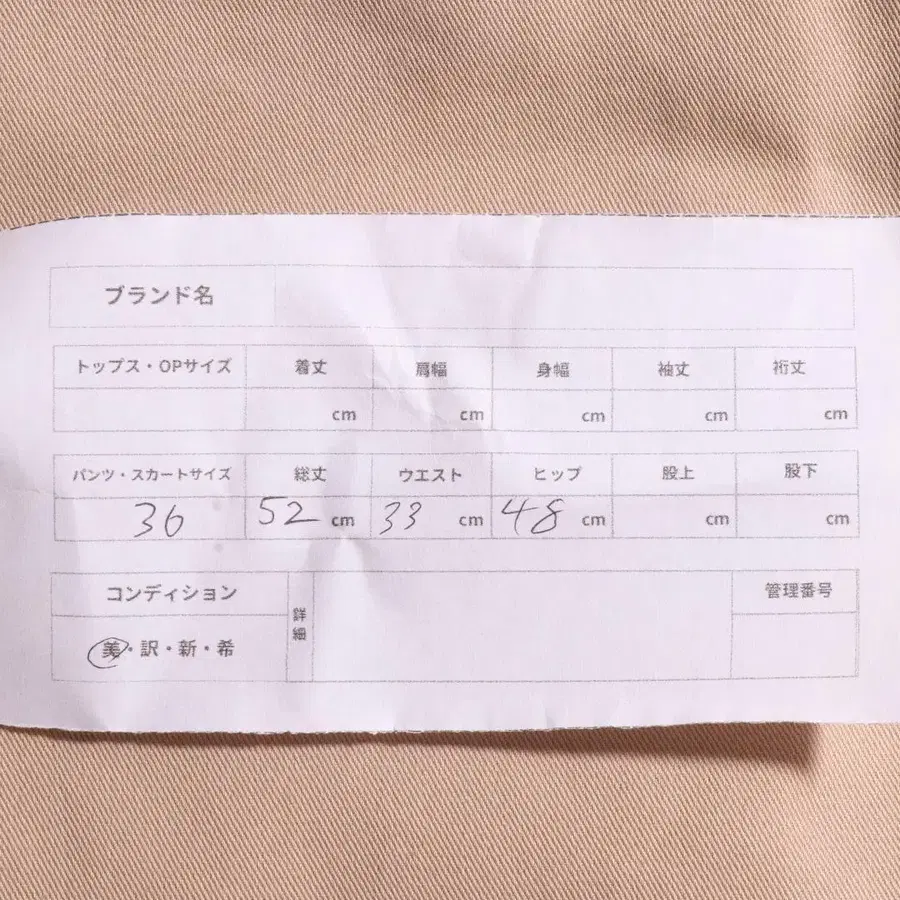 ブランド名
トップス・OPサイズ 着丈 肩幅 身幅 袖丈 裄丈
cm cm cm cm cm
パンツ・スカートサイズ 総丈 ウエスト ヒップ 股上 股下
36 52 cm 33 cm 48 cm cm cm
コンディション 詳細 管理番号
美・訳・新・希